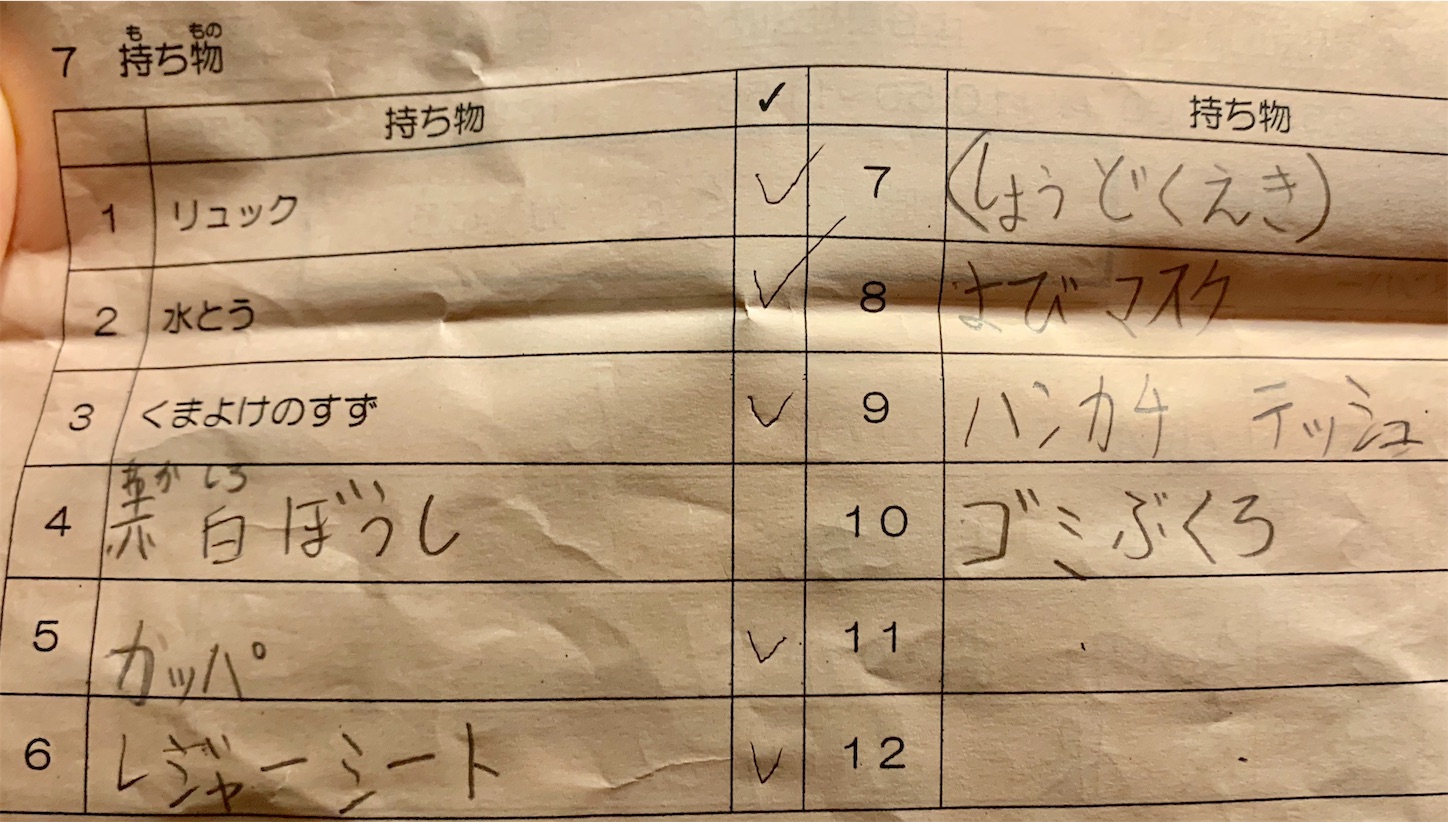 7 持ち物
も もの
持ち物 ✓ 持ち物
1 リュック ✓ 7 (しょうどくえき)
2 水とう ✓ 8 よびマスク
3 くまよけのすず ✓ 9 ハンカチ テッシュ
あか しろ
4 赤白ぼうし 10 ゴミぶくろ
5 カッパ ✓ 11
6 レジャーシート ✓ 12